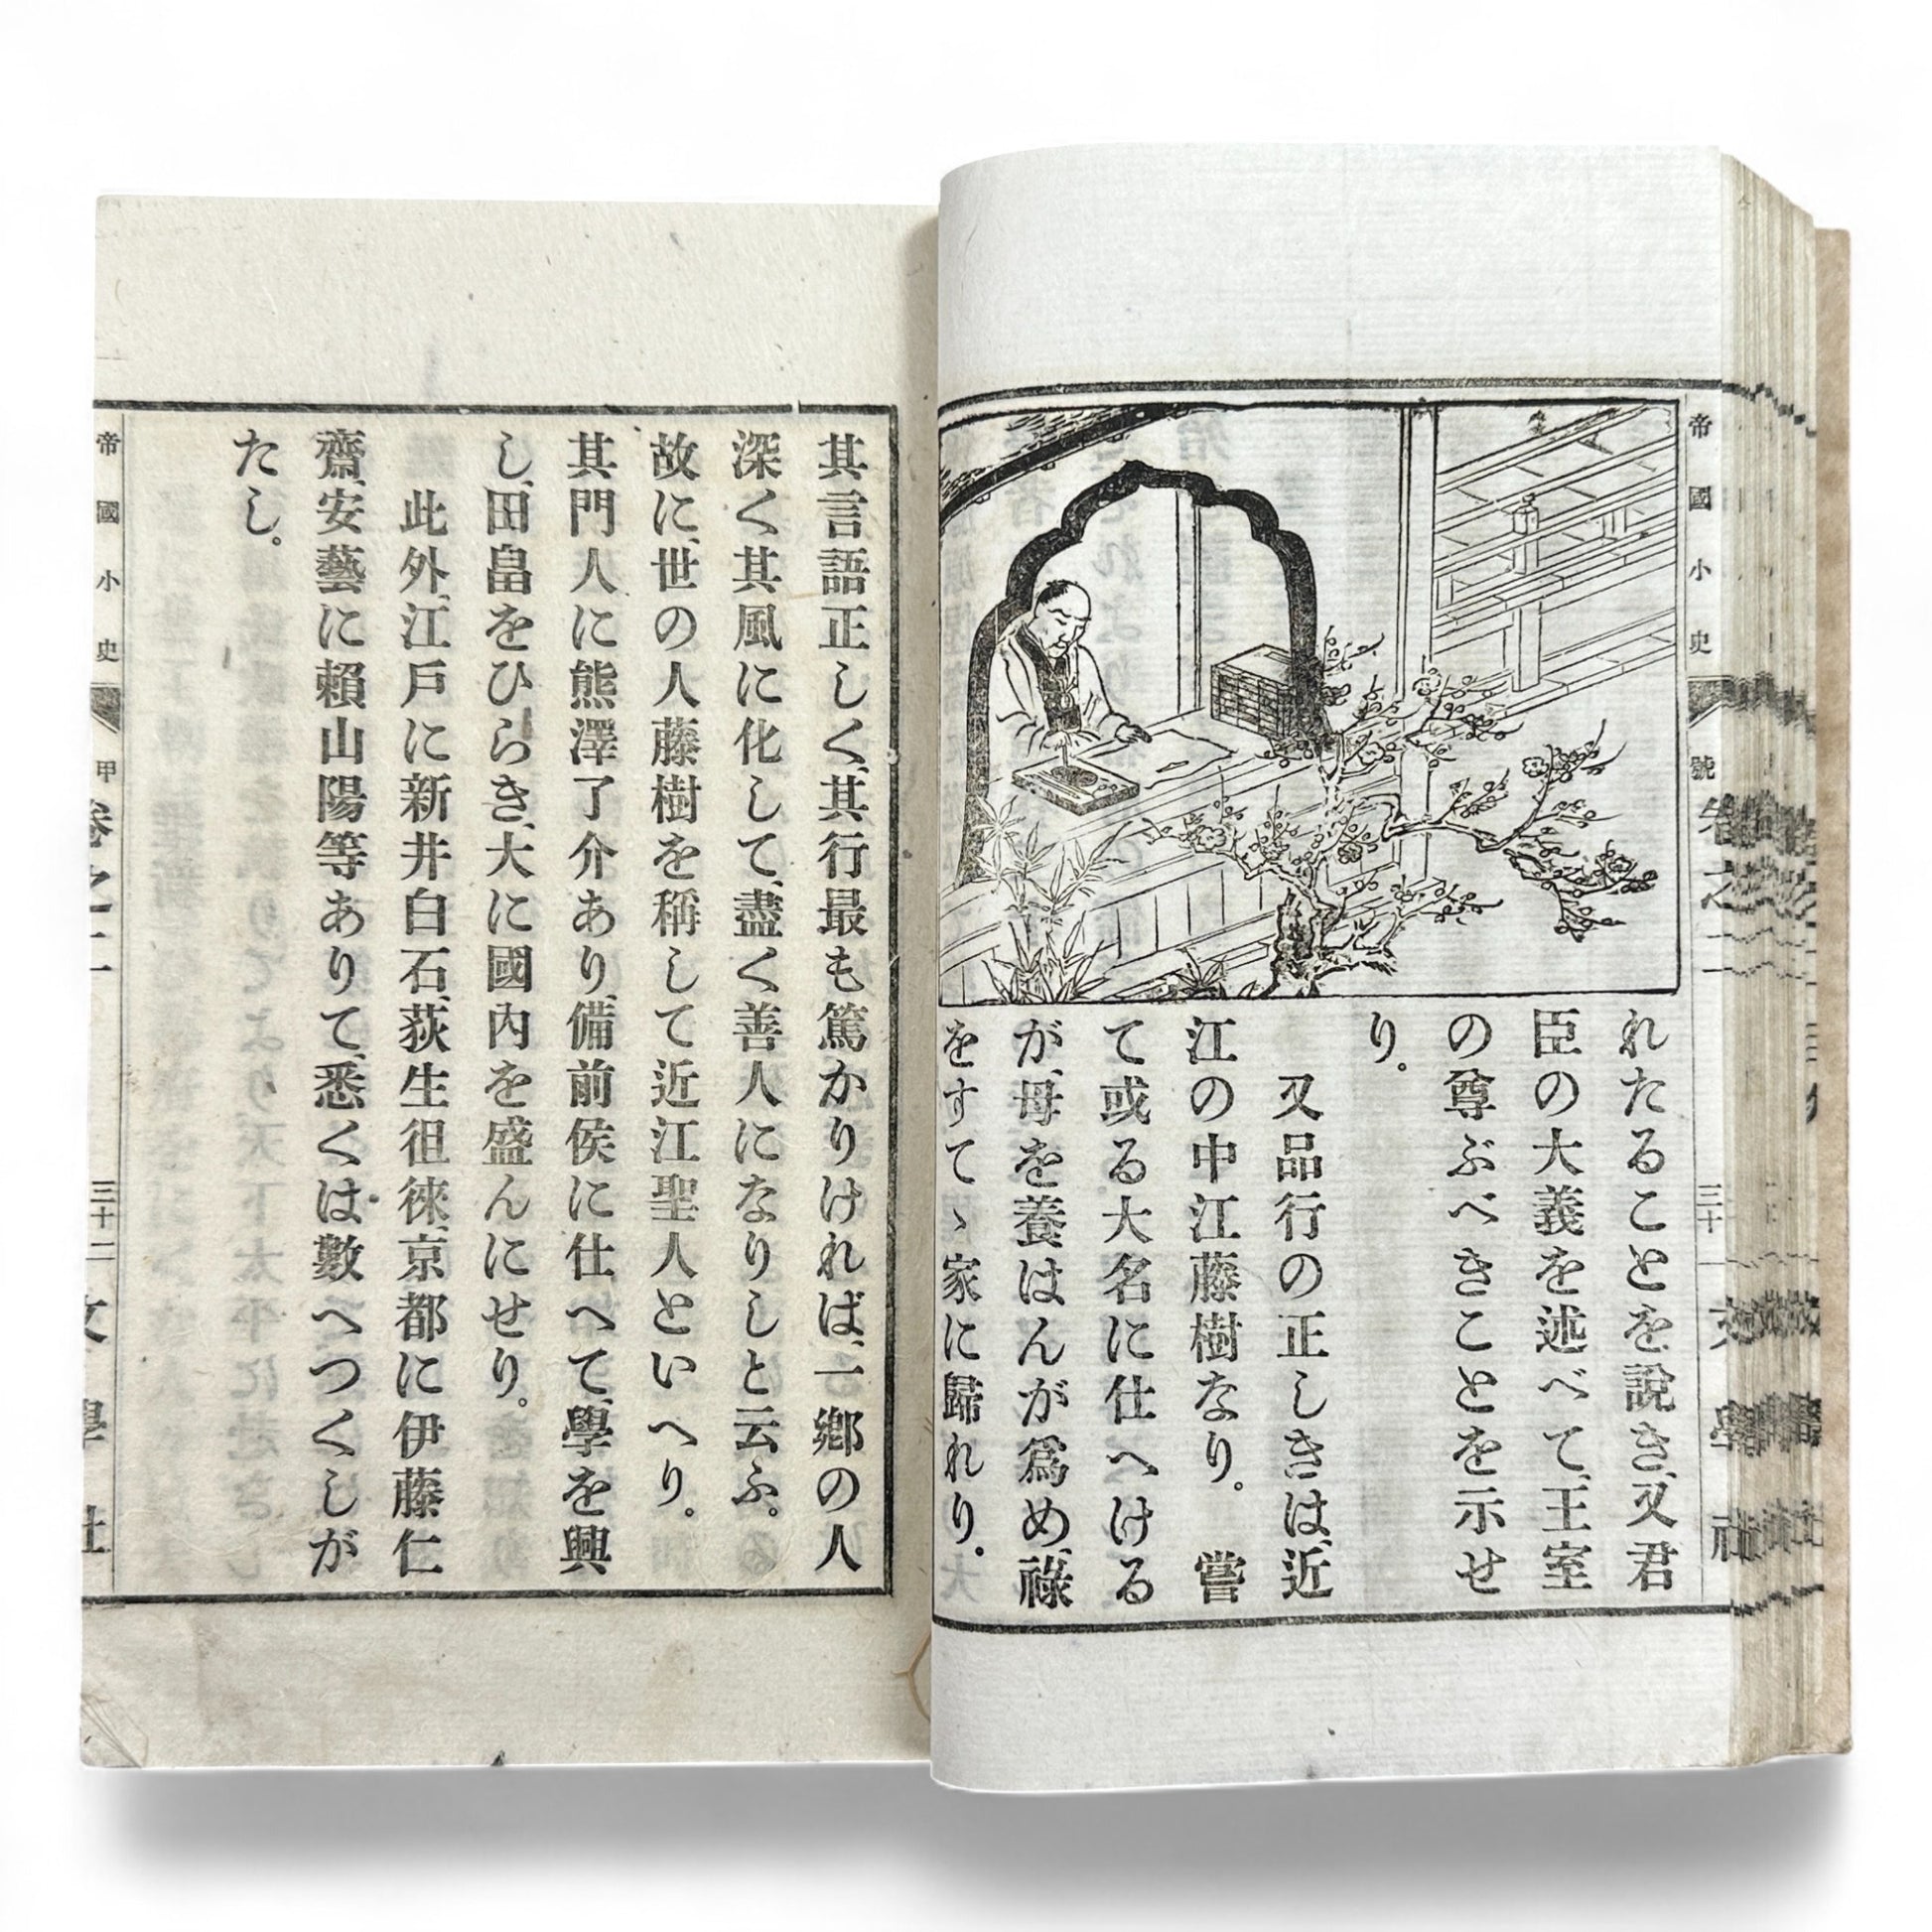 帝國小史
號
卷之二
三十
文學社
れたることを說き、又君
臣の大義を述べて、王室
の尊ぶべきことを示せ
り。
又品行の正しきは、近
江の中江藤樹なり。嘗
て或る大名に仕へける
が、母を養はんが爲め、祿
をすてゝ家に歸れり。
其言語正しく、其行最も篤かりければ、一鄕の人
深く其風に化して、盡く善人になりしと云ふ。
故に、世の人藤樹を稱して近江聖人といへり。
其門人に熊澤了介あり、備前侯に仕へて、學を興
し、田畠をひらき、大に國內を盛んにせり。
此外、江戶に新井白石、荻生徂徠、京都に伊藤仁
齋、安藝に賴山陽等ありて、悉くは數へつくしが
たし。
帝國小史
甲
卷之二
三十二
文學社